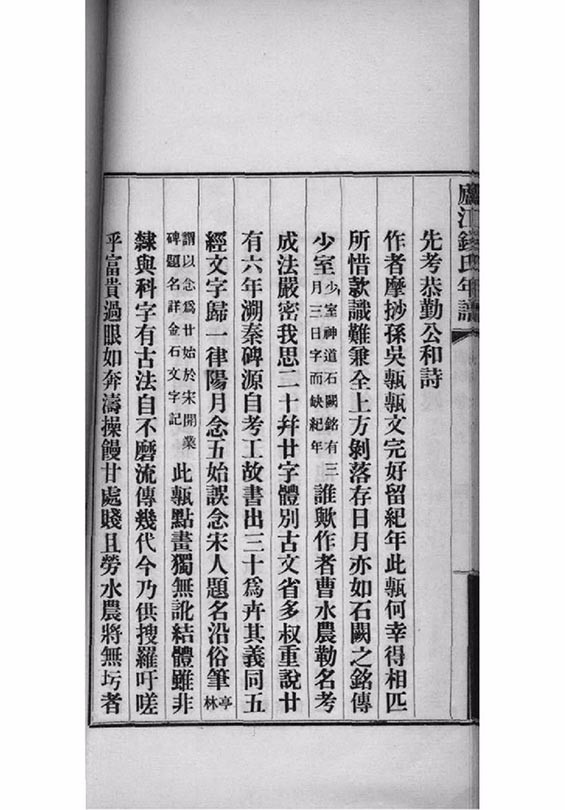 廬江錢氏年譜
先考恭勤公和詩
作者摩挱孫吳甎甎文完好留紀年此甎何幸得相匹
所惜款識難兼全上方剝落存日月亦如石闕之銘傳
少室少室神道石闕銘有三月三日字而缺紀年誰歟作者曹水農勒名考
成法嚴密我思二十幷廿字體別古文省多叔重說廿
有六年溯秦碑源自考工故書出三十爲卉其義同五
經文字歸一律陽月念五始誤念宋人題名沿俗筆亭林
謂以念爲廿始於宋開業碑題名詳金石文字記此甎點畫獨無訛結體雖非
隸與科字有古法自不磨流傳幾代今乃供搜羅吁嗟
乎富貴過眼如奔濤操饅甘處賤且勞水農將無圬者